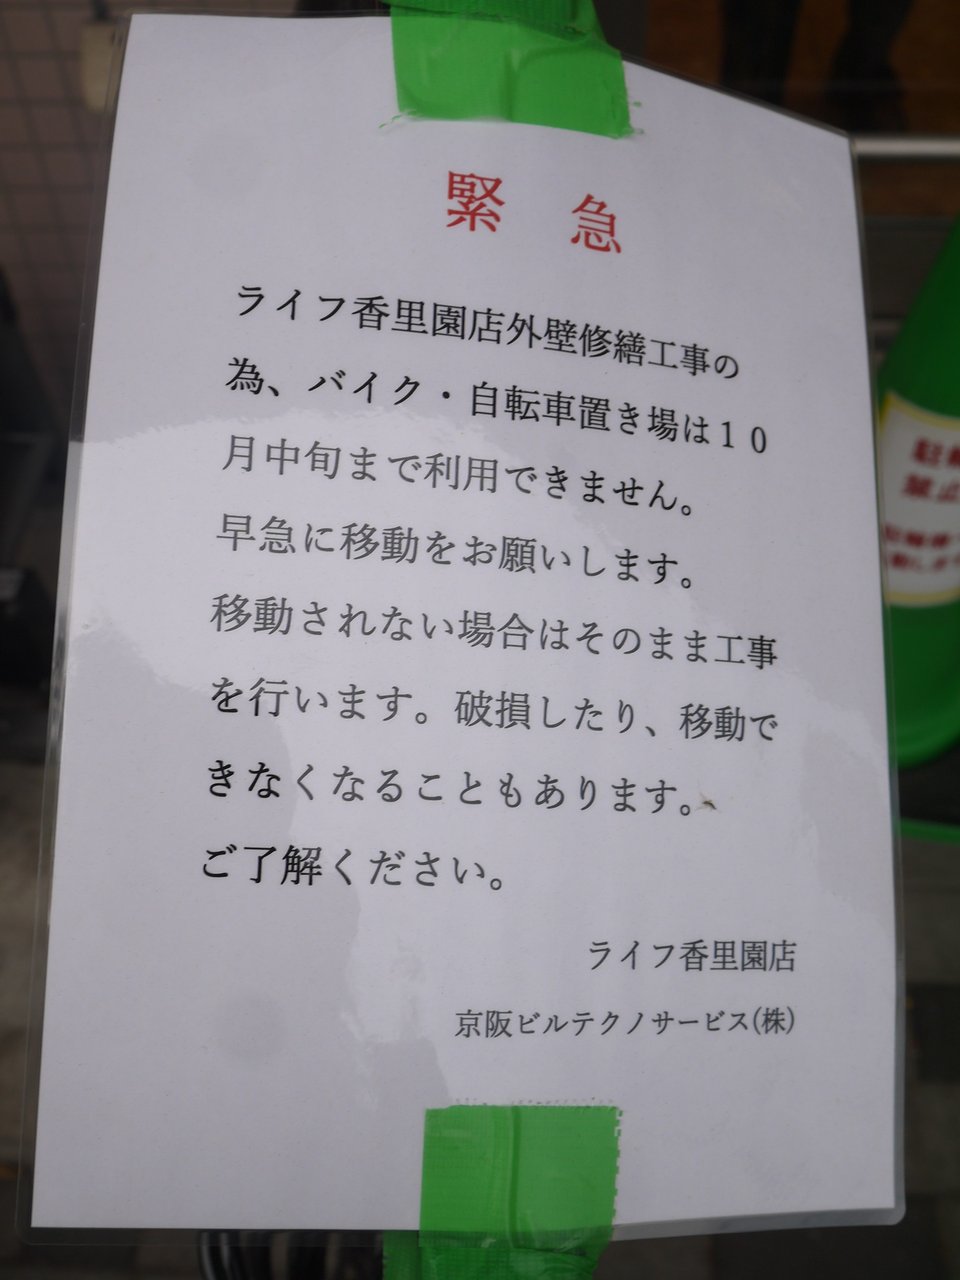 緊 急
ライフ香里園店外壁修繕工事の
為、バイク・自転車置き場は１０
月中旬まで利用できません。
早急に移動をお願いします。
移動されない場合はそのまま工事
を行います。破損したり、移動で
きなくなることもあります。
ご了解ください。
ライフ香里園店
京阪ビルテクノサービス(株)
禁止